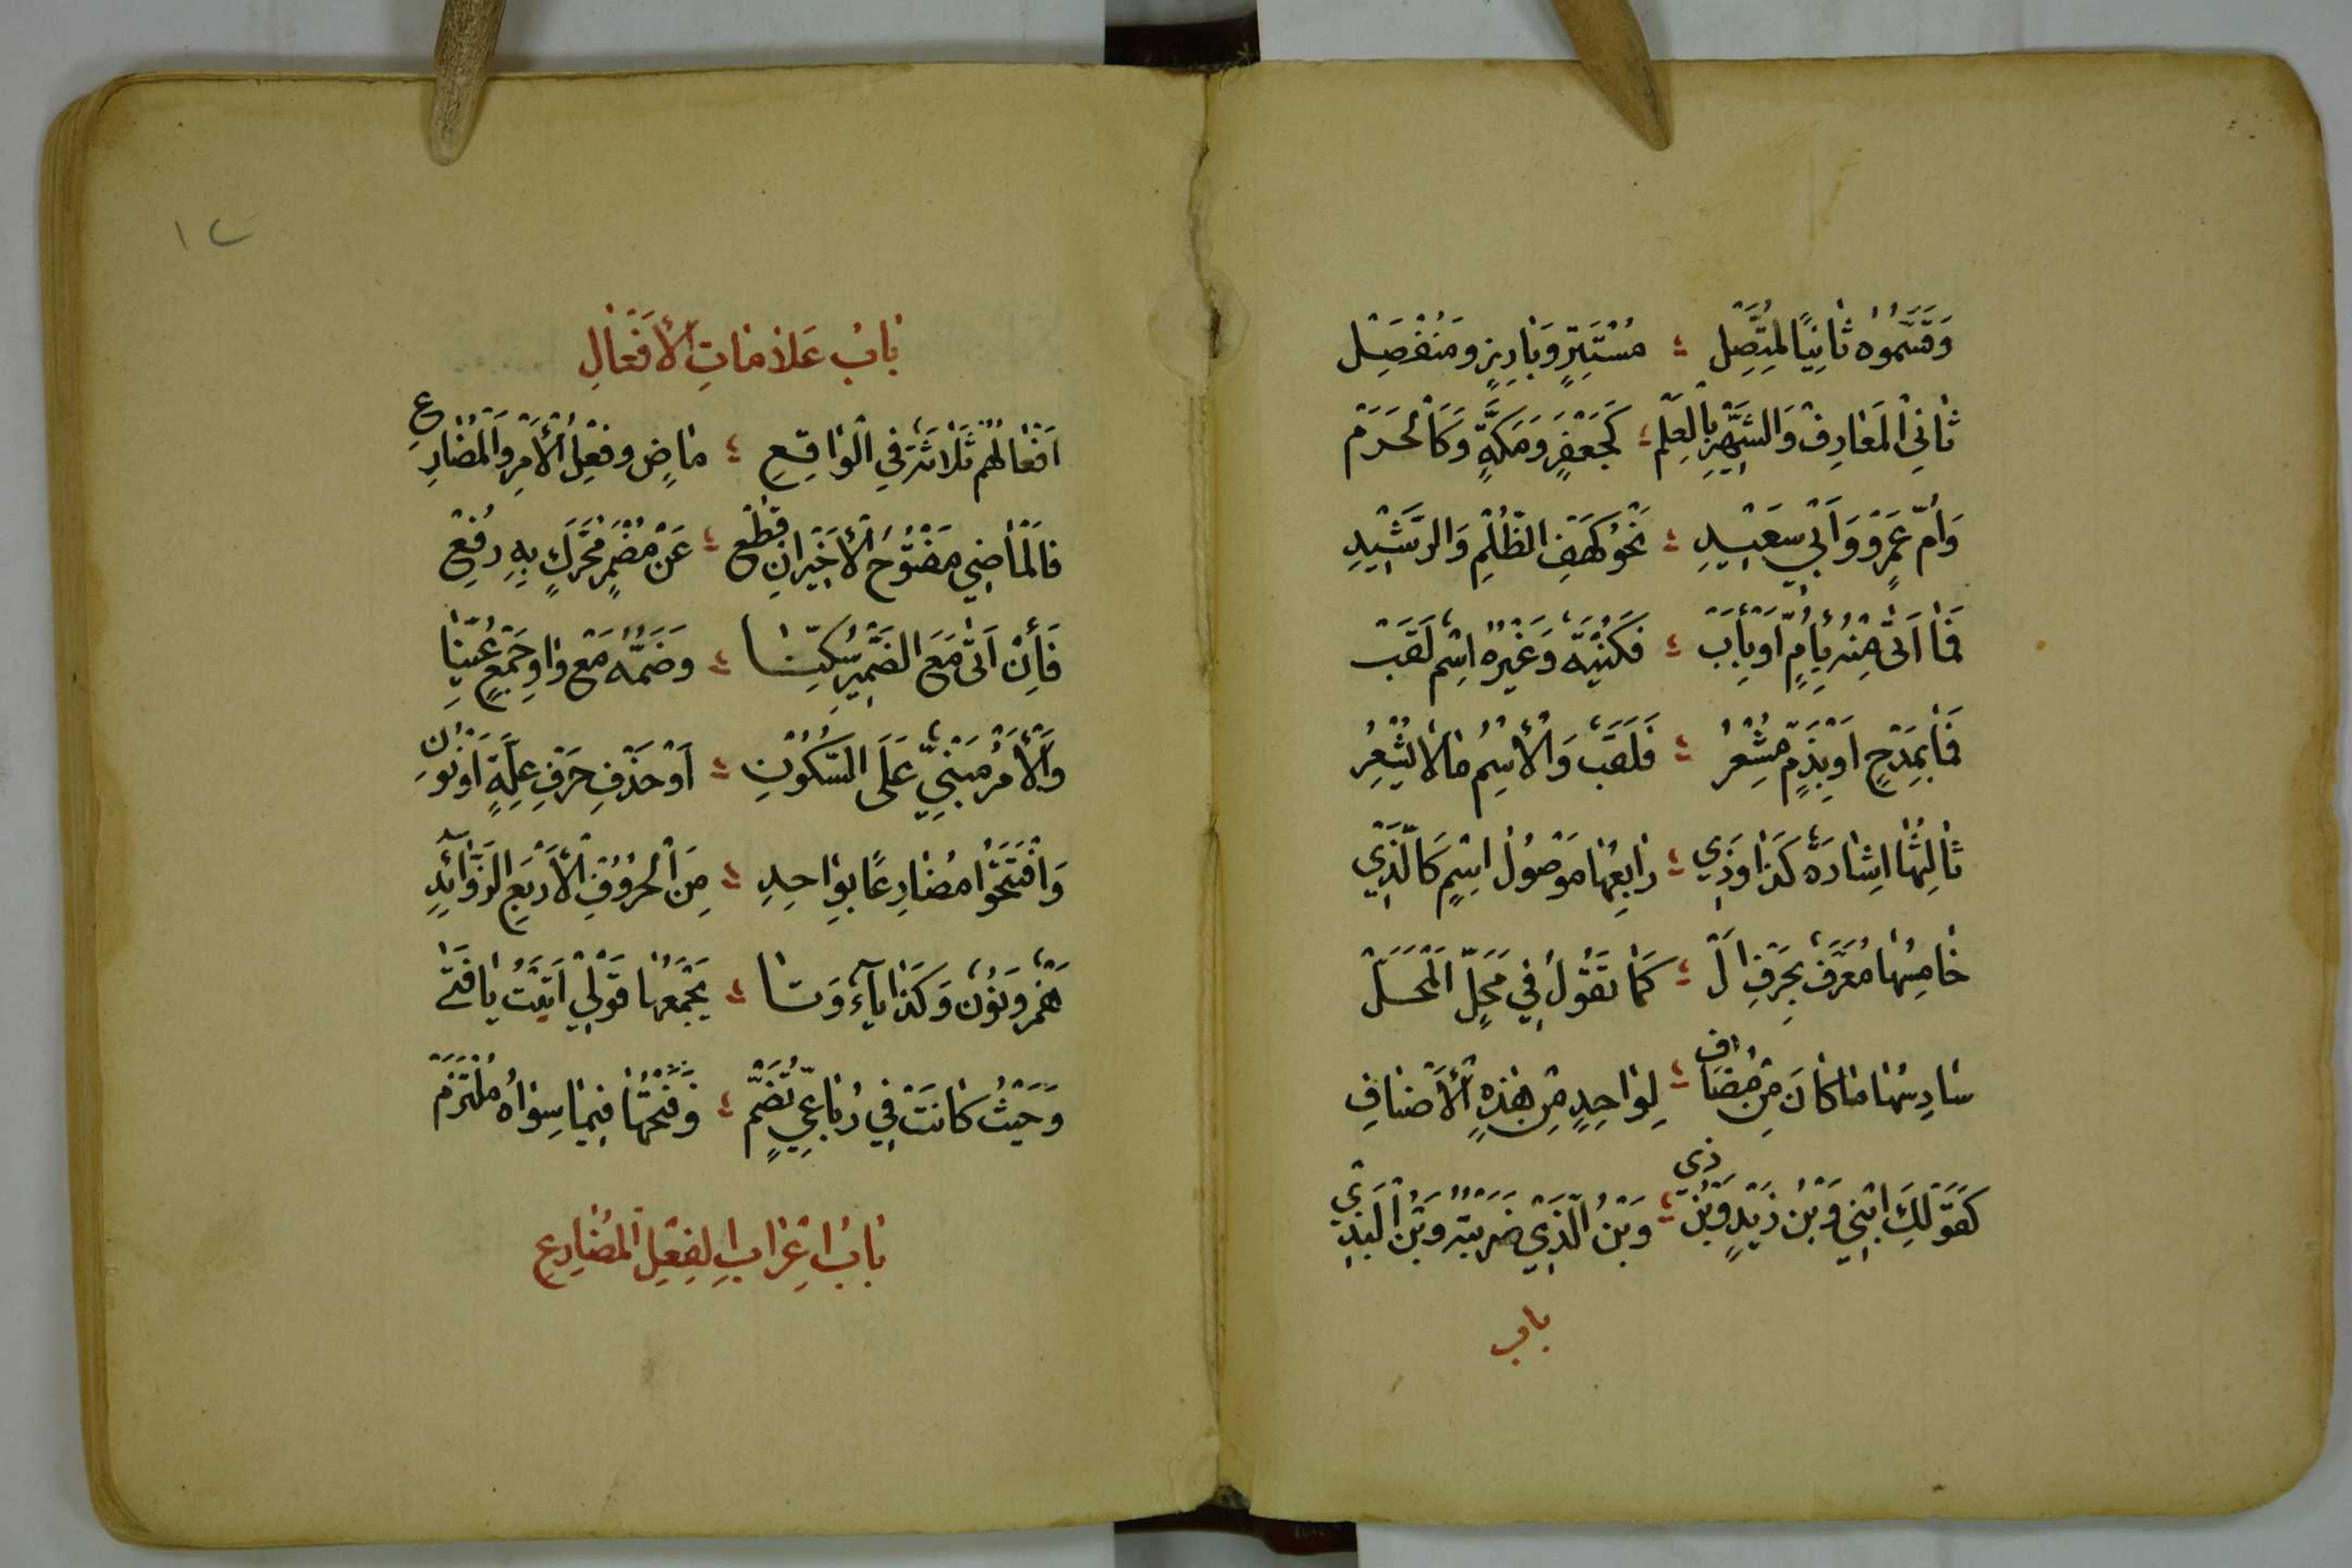 وَقَسَّمُوهُ ثَانِيًا لِمُتَّصِلْ ؛ مُسْتَتِرٍ وَبَارِزٍ وَمُنْفَصِلْ
ثَانِي الْمَعَارِفْ وَالشَّهِيرِ بِالْعَلَمْ ؛ كَجَعْفَرٍ وَمَكَّةٍ وَكَالْحَرَمْ
وَأُمّ عَمْرٍو وَأَبِي سَعِيدِ ؛ نَحْوُ كَهْفِ الظُّلَمِ وَالرَّشِيدِ
فَمَا اَتَى مِنْهُ بِأُمٍّ اَوْ بِأَبْ ؛ فَكُنْيَةٌ وَغَيْرُهُ اسْمٌ لَقَبْ
فَمَا بِمَدْحٍ اَوْ بِذَمٍّ مُشْعِرُ ؛ فَلَقَبٌ وَالْأِسْمُ مَا لَا يُشْعِرُ
ثَالِثُهَا اِشَارَةٌ كَذَا وَذِي ؛ رَابِعُهَا مَوْصُولُ اسْمٍ كَالَّذِي
خَامِسُهَا مُعَرَّفٌ بِحَرْفِ اَلْ ؛ كَمَا تَقُولُ فِي مَحَلٍّ اَلْمَحَلْ
سَادِسُهَا مَا كَانَ مِنْ مُضَافِ ؛ لِوَاحِدٍ مِنْ هٰذِهِ الْأَصْنَافِ
كَقَوْلِكَ ابْنِي وَبْنُ زَيْدٍ وَبْنُ ذِي ؛ وَبْنُ الَّذِي ضَرَبْتُهُ وَبْنُ الْبَذِي
باب
١٢
بَابُ عَلَامَاتِ الْأَفْعَالِ
اَفْعَالُهُمْ ثَلَاثَةٌ فِي الْوَاقِعِ ؛ مَاضٍ وَفِعْلُ الْأَمْرِ وَالْمُضَارِعِ
فَالْمَاضِي مَفْتُوحُ الْأَخِيرِ اِنْ قُطِعْ ؛ عَنْ مُضْمَرٍ مُحَرَّكٍ بِهِ رُفِعْ
فَأِنْ اَتَى مَعَ الضَّمِيرِ سُكِّنَا ؛ وَضَمُّهُ مَعْ وَاوِ جَمْعٍ عُيِّنَا
وَالْأَمْرُ مَبْنِيٌّ عَلَى السُّكُونِ ؛ اَوْ حَذْفِ حَرْفِ عِلَّةٍ اَوْ نُونِ
وَافْتَتَحُوا مُضَارِعًا بِوَاحِدِ ؛ مِنَ الْحُرُوفِ الْأَرْبَعِ الزَّوَائِدِ
هَمْزٌ وَنُونٌ وَكَذَا يَآءٌ وَتَا ؛ يَجْمَعُهَا قَوْلِي اَنَيْتُ يَا فَتَى
وَحَيْثُ كَانَتْ فِي رُبَاعِيٍّ تُضَمّْ ؛ وَفَتْحُهَا فِيمَا سِوَاهُ مُلْتَزَمْ
بَابُ اِعْرَابِ الْفِعْلِ الْمُضَارِعِ